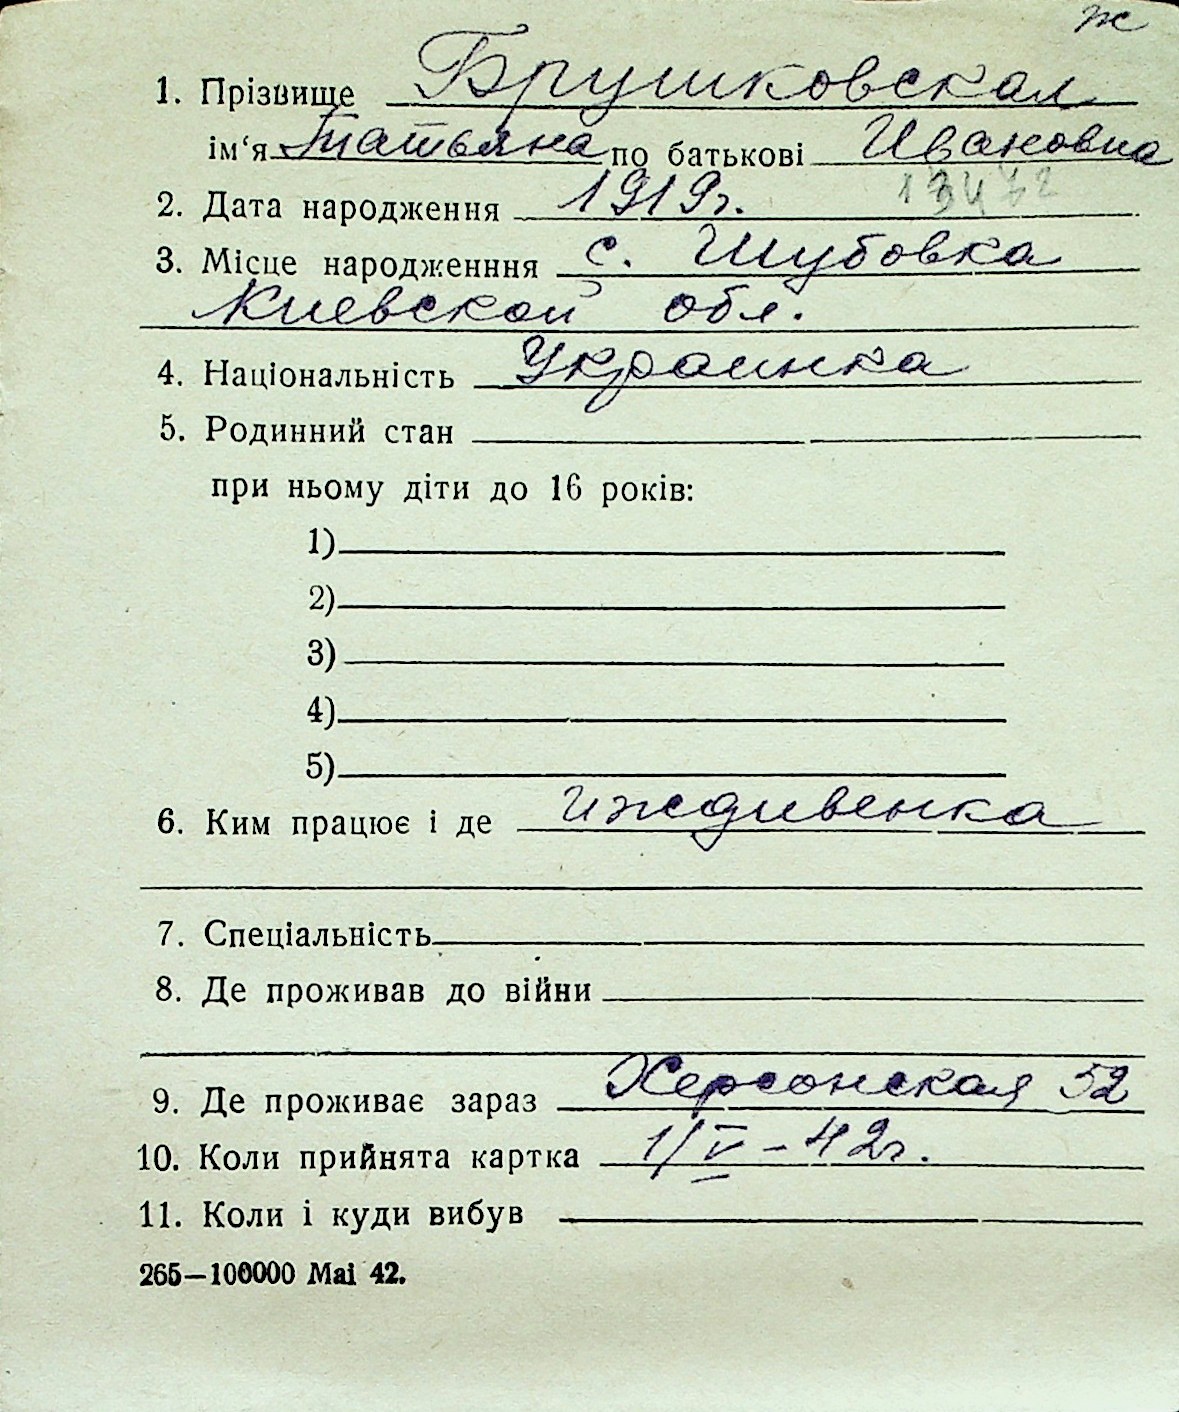 ж
1. Прізвище Брушковская
ім‘я Татьяна по батькові Ивановна
2. Дата народження 1919г.
3. Місце народженння с. Шубовка
Киевской обл.
4. Національність Украинка
5. Родинний стан
при ньому діти до 16 років:
1)
2)
3)
4)
5)
6. Ким працює і де иждивенка
7. Спеціальність
8. Де проживав до війни
9. Де проживає зараз Херсонская 52
10. Коли прийнята картка 1/V – 42г.
11. Коли і куди вибув
265—100000 Mai 42.